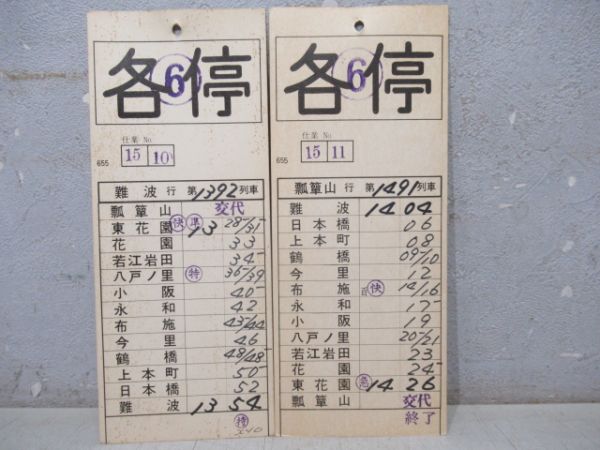 各⑥停
仕業 No
15 10
655
難波行 第1392列車
瓢簞山 交代
東花園 快 準 13 28/31
花園 33
若江岩田 34
八戸ノ里 特 36/39
小阪 40
永和 42
布施 43/44
今里 46
鶴橋 48/48
上本町 50
日本橋 52
難波 13 54
特
各⑥停
仕業 No
15 11
655
瓢簞山行 第1491列車
難波 14 04
日本橋 06
上本町 08
鶴橋 09/10
今里 12
布施 快 14/16
永和 17
小阪 19
八戸ノ里 20/21
若江岩田 23
花園 24
東花園 急 14 26
瓢簞山 交代
終了